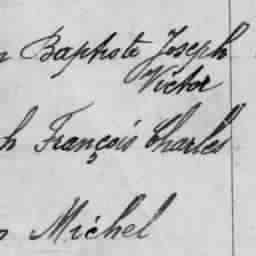 n Baptiste Joseph
Victor
h François Charles
n Michel